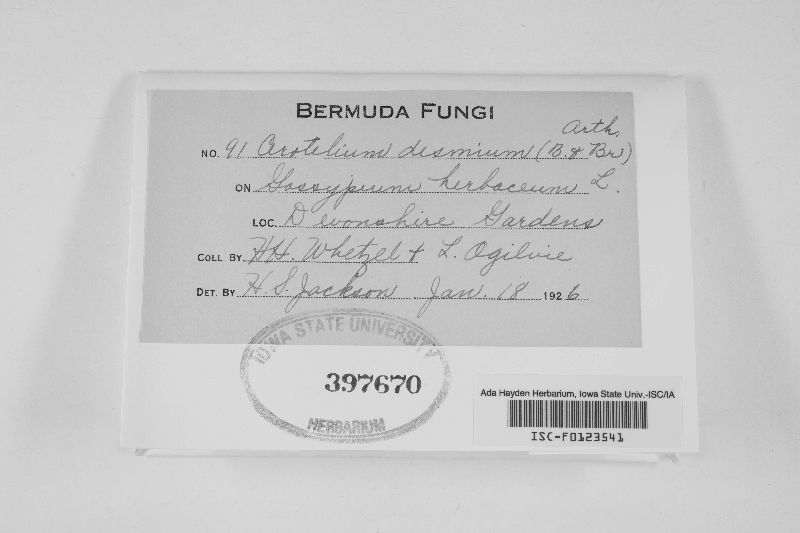 BERMUDA FUNGI
Arth.
NO. 91 Cerotelium desmium (B. & Br)
ON Gossypium herbaceum L.
LOC. Devonshire Gardens
COLL BY H.H. Whetzel & L. Ogilvie
DET. BY H. S. Jackson Jan. 18 1926
IOWA STATE UNIVERSITY
397670
HERBARIUM
Ada Hayden Herbarium, Iowa State Univ.-ISC/IA
ISC-F0123541